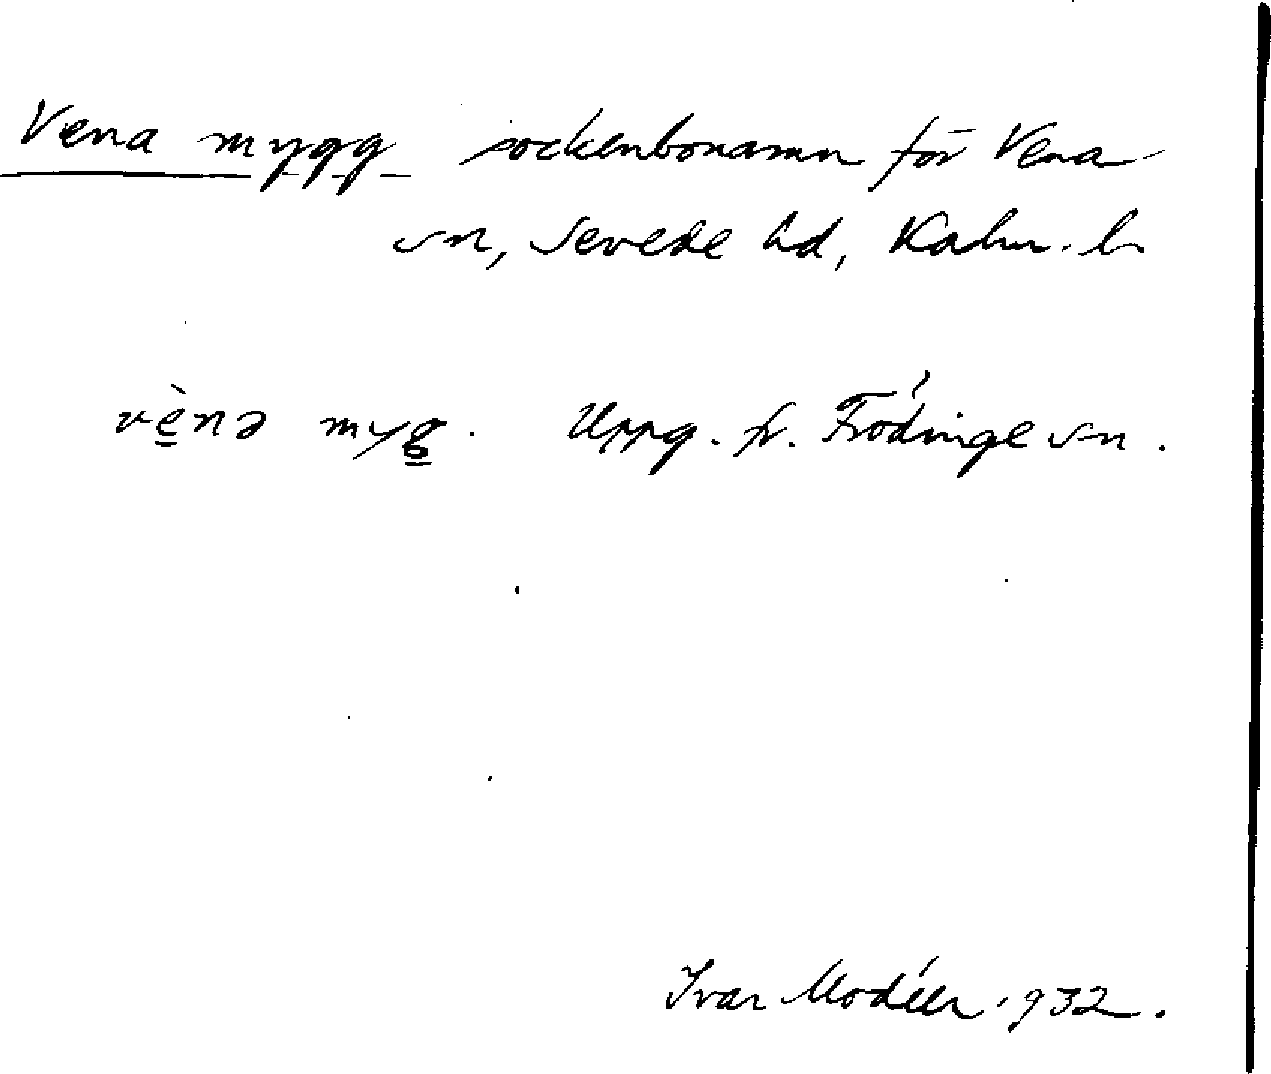 Vena mygg sockenbonamn för Vena
sn, Sevede hd, Kalm. l.
vè̱nə myg̳. Uppg. fr. Frödinge sn.
Ivar Modéer 1932.